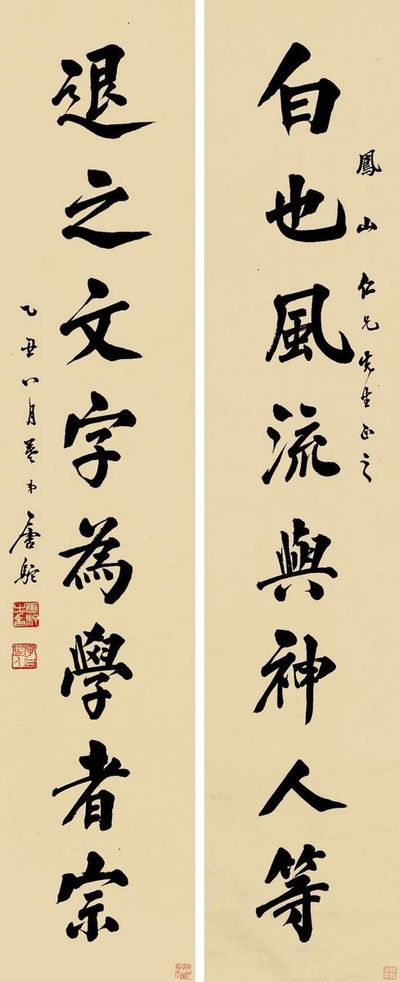 鳳山仁兄先生正之
白也風流與神人等
退之文字為學者宗
乙丑八月養本唐駝